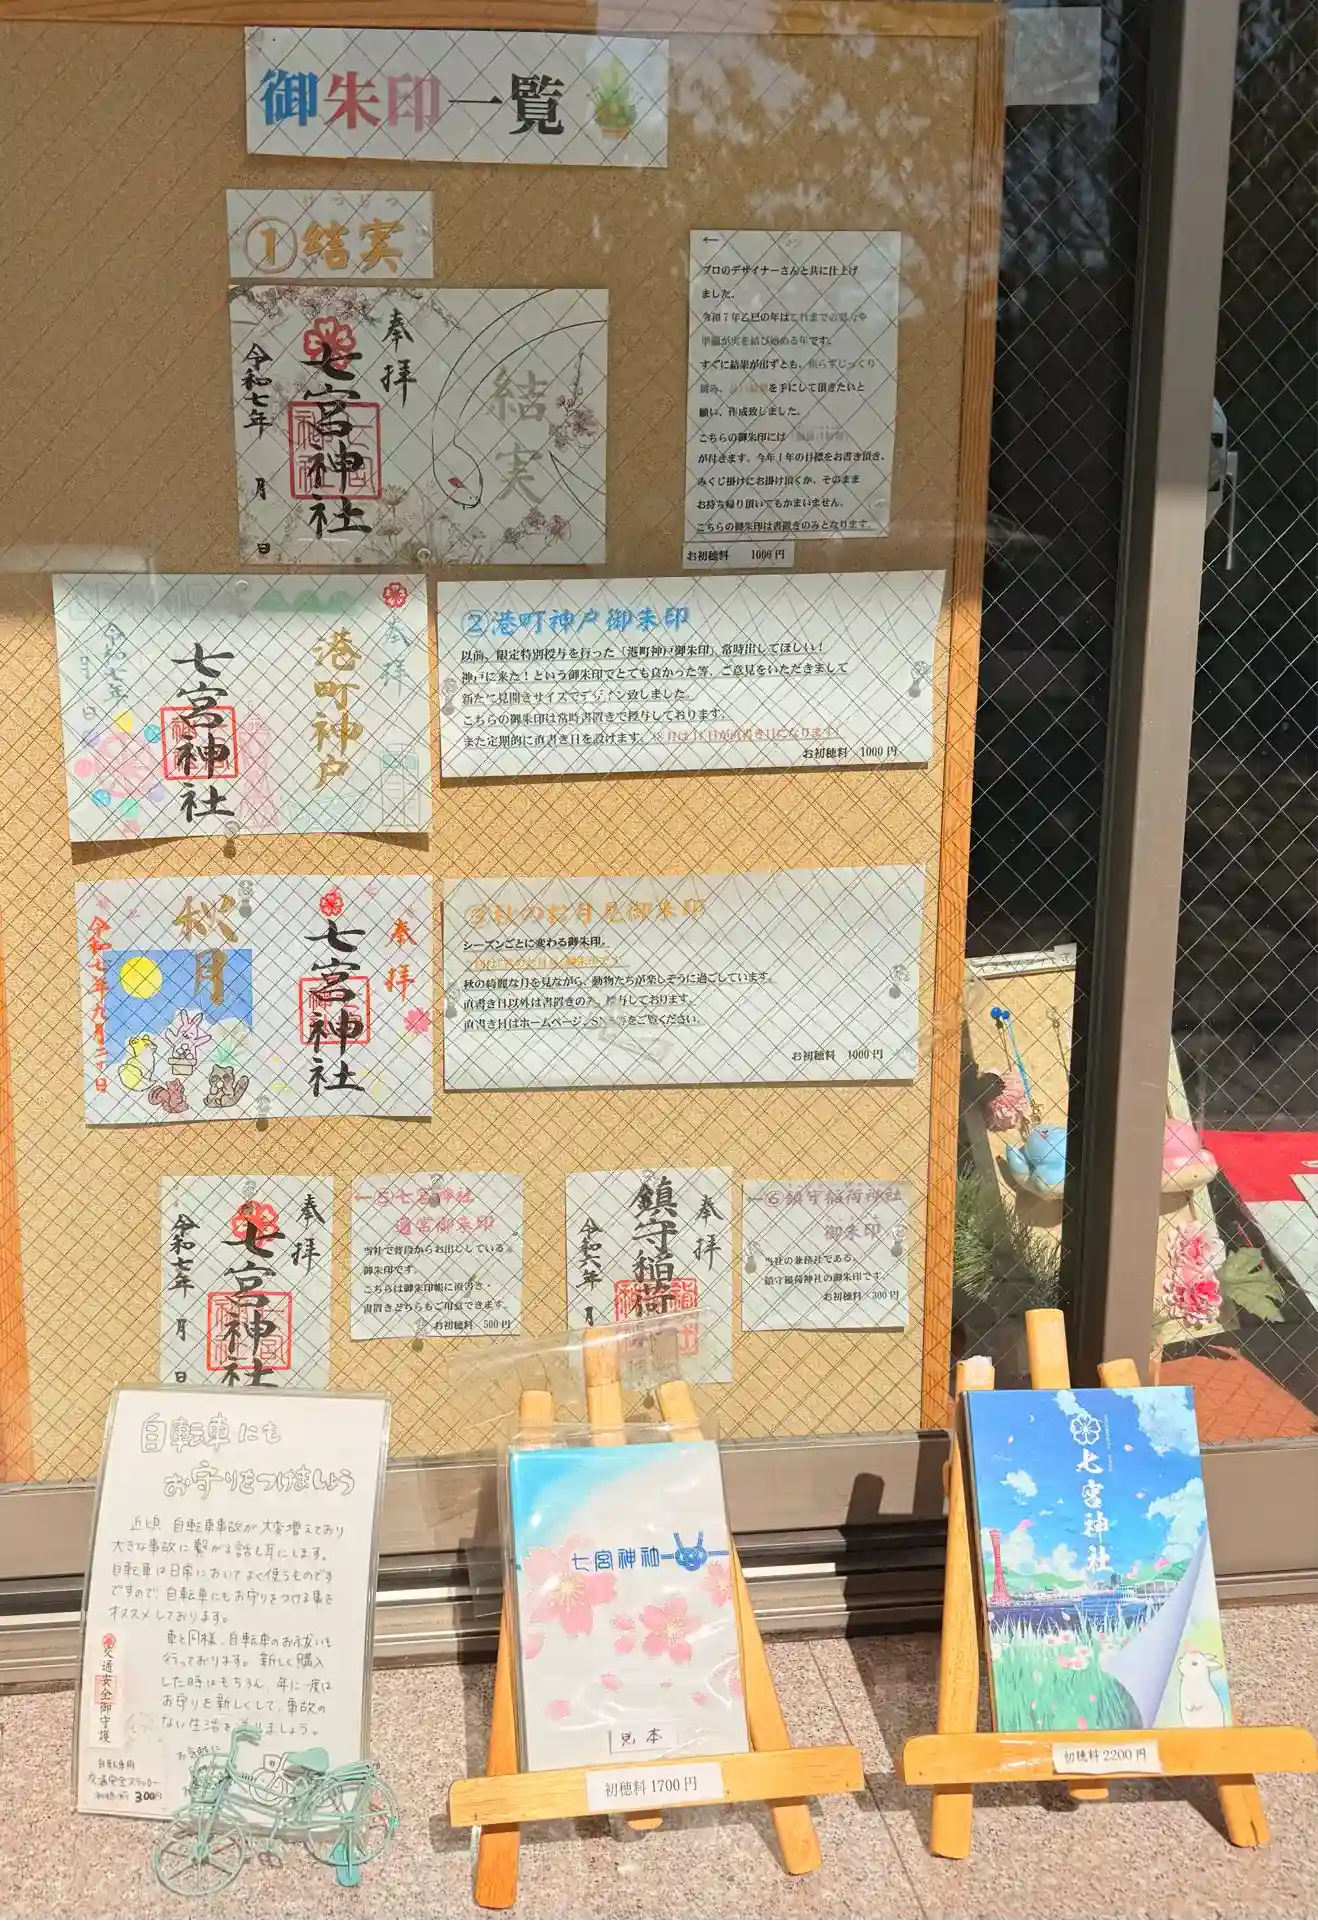 御朱印一覧
けつじつ
①結実
奉拝
七宮神社
令和七年
月
日
結実
←
プロのデザイナーさんと共に仕上げ
ました。
令和7年乙巳の年はこれまでの努力や
準備が実を結び始める年です。
すぐに結果が出ずとも、焦らずじっくり
を手にして頂きたいと
願い、作成致しました。
こちらの御朱印には
が付きます。今年1年の目標をお書き頂き、
みくじ掛けにお掛け頂くか、そのまま
お持ち帰り頂いてもかまいません。
こちらの御朱印は書置きのみとなります。
お初穂料 1000円
奉拝
港町神戸
七宮神社
令和七年
月
日
②港町神戸御朱印
以前、限定特別授与を行った「港町神戸御朱印」常時出してほしい！
神戸に来た！という御朱印でとても良かった等、ご意見をいただきまして
新たに見開きサイズでデザイン致しました。
こちらの御朱印は常時書置きで授与しております。
また定期的に直書き日を設けます。
日が直書き日になります！
お初穂料 1000円
奉拝
七宮神社
秋月
令和七年九月二十日
③秋のお月見御朱印
シーズンごとに変わる御朱印。
秋の綺麗な月を見ながら、動物たちが楽しそうに過ごしています。
直書き日以外は書置きのみ、授与しております。
直書き日はホームページ、SNS等をご覧ください。
お初穂料 1000円
奉拝
七宮神社
令和七年
月
日
←⑤七宮神社
通常御朱印
当社で普段からお出ししている
御朱印です。
こちらは御朱印帳に直書き・
書置きどちらもご用意できます。
お初穂料 500円
奉拝
鎮守稲荷
令和六年
月
←⑥鎮守稲荷神社
御朱印
当社の兼務社である、
鎮守稲荷神社の御朱印です。
お初穂料 300円
自転車にも
お守りをつけましょう
近頃 自転車事故が大変増えており
大きな事故に繋がる話も耳にします。
自転車は日常においてよく使うものです
ですので、自転車にもお守りをつける事を
オススメしております。
車と同様、自転車のお祓いも
行っております。新しく購入
した時はもちろん、年に一度は
お守りを新しくして、事故の
ない生活を送りましょう。
お気軽に
交通安全御守護
自転車用
交通安全ステッカー
初穂料 300円
七宮神社
見本
初穂料1700円
七宮神社
初穂料2200円